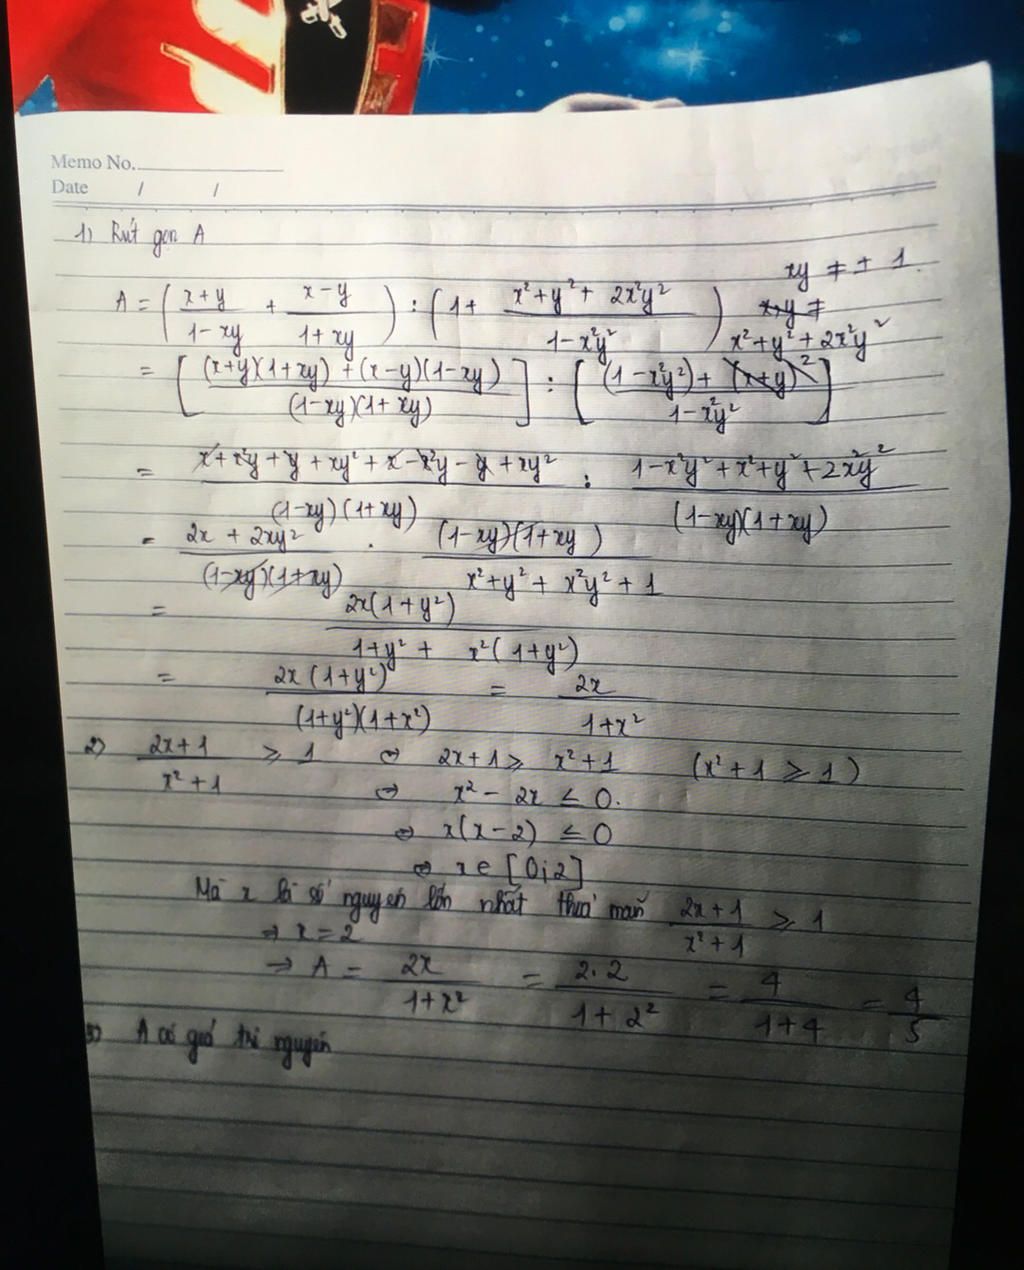 Memo No.
Date / /
1) Rút gọn A
xy ≠ ± 1
A = (x+y/1-xy + x-y/1+xy) : (1+ x²+y²+2x²y²/1-x²y²)
x²+y²+2x²y²
= [(x+y)(1+xy)+(x-y)(1-xy)/(1-xy)(1+xy)] : [(1-x²y²)+(x+y)²/1-x²y²]
= x+x²y+y+xy²+x-x²y-y+xy²/(1-xy)(1+xy) : 1-x²y²+x²+y²+2x²y²/(1-xy)(1+xy)
= 2x+2xy²/(1-xy)(1+xy) . (1-xy)(1+xy)/x²+y²+x²y²+1
= 2x(1+y²)/1+y²+x²(1+y²)
= 2x(1+y²)/(1+y²)(1+x²) = 2x/1+x²
2) 2x+1/x²+1 ≥ 1 ⇔ 2x+1 ≥ x²+1 (x²+1 ≥ 1)
⇔ x²-2x ≤ 0.
⇔ x(x-2) ≤ 0
⇔ x ∈ [0;2]
Mà x là số nguyên lớn nhất thoả mãn 2x+1/x²+1 ≥ 1
⇒ x = 2
→ A = 2x/1+x² = 2.2/1+2² = 4/1+4 = 4/5
3) A có giá trị nguyên